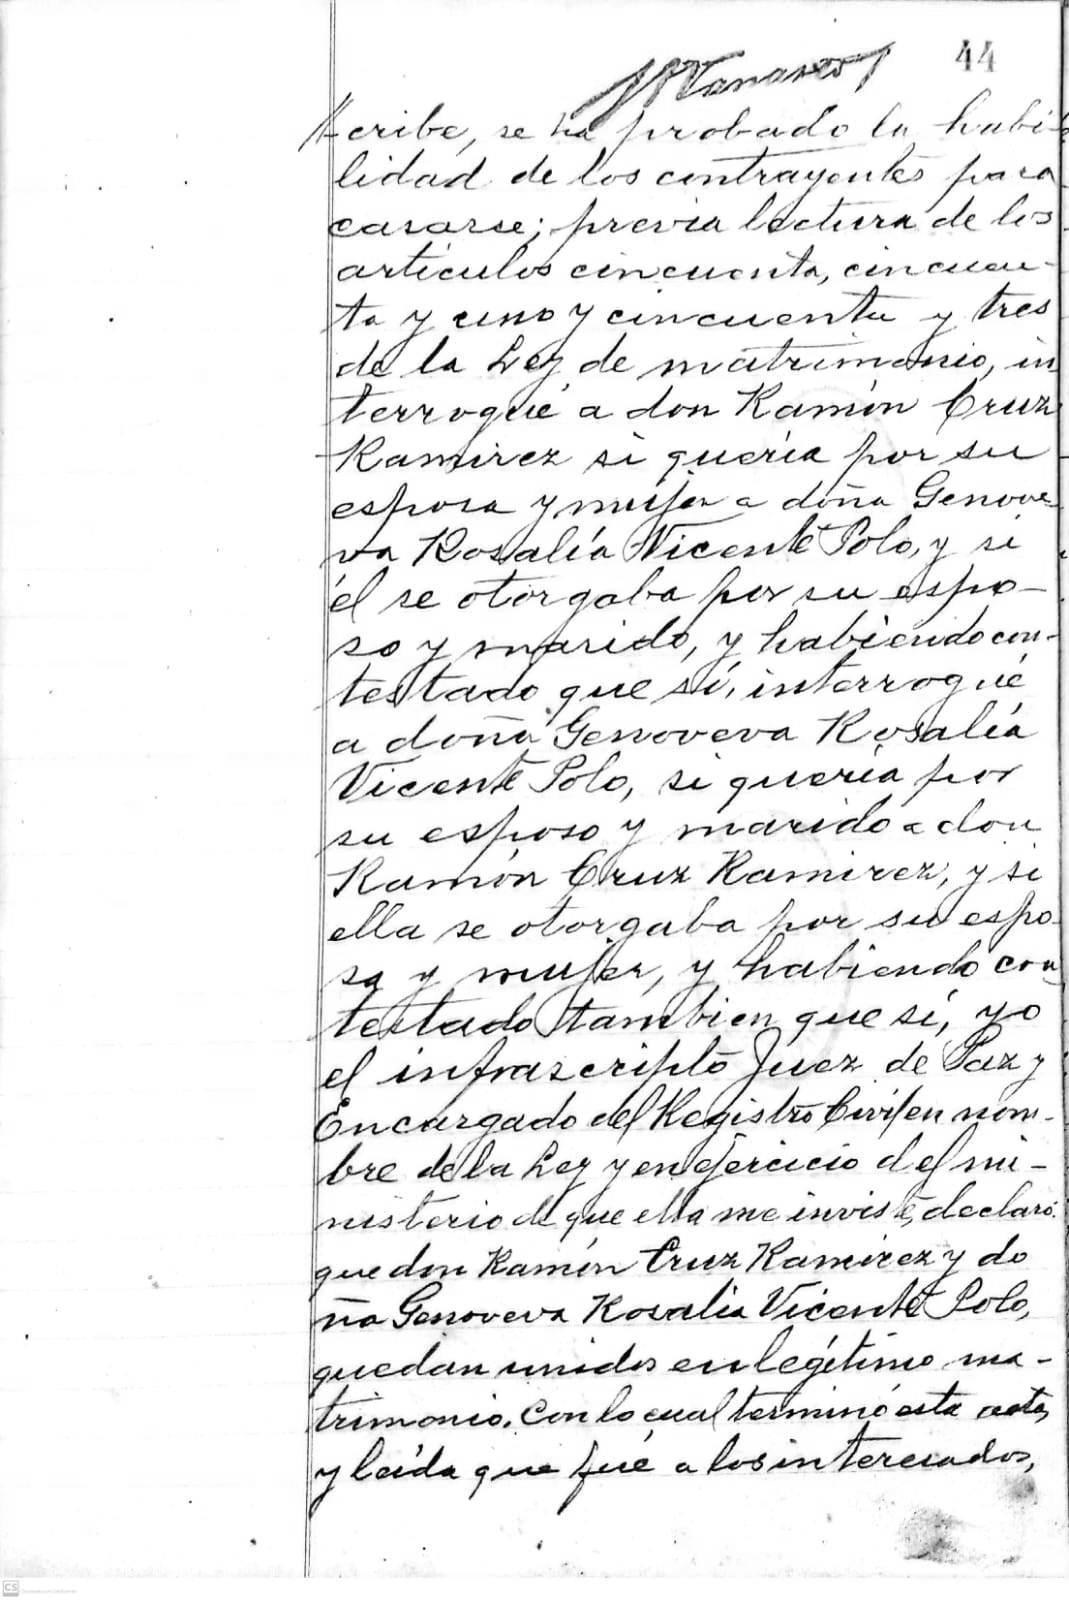 44
cribe, se ha probado la habi-
lidad de los contrayentes para
casarse; previa lectura de los
artículos cincuenta, cincuen-
ta y uno y cincuenta y tres
de la Ley de matrimonio, in
terrogué a don Ramón Cruz
Ramirez si quería por su
esposa y mujer a doña Genove
va Rosalía Vicente Polo, y si
él se otorgaba por su espo-
so y marido, y habiendo con-
testado que sí, interrogué
a doña Genoveva Rosalía
Vicente Polo, si quería por
su esposo y marido a don
Ramón Cruz Ramirez, y si
ella se otorgaba por su espo-
sa y mujer, y habiendo con
testado tambien que sí, yo
el infrascripto Juez de Paz y
Encargado del Registro Civil en nom-
bre de la Ley y en ejercicio del mi-
nisterio de que ella me inviste, declaro:
que don Ramón Cruz Ramirez y do
ña Genoveva Rosalía Vicente Polo,
quedan unidos en legítimo ma-
trimonio. Con lo cual terminó esta acta,
y leída que fué a los interesados,